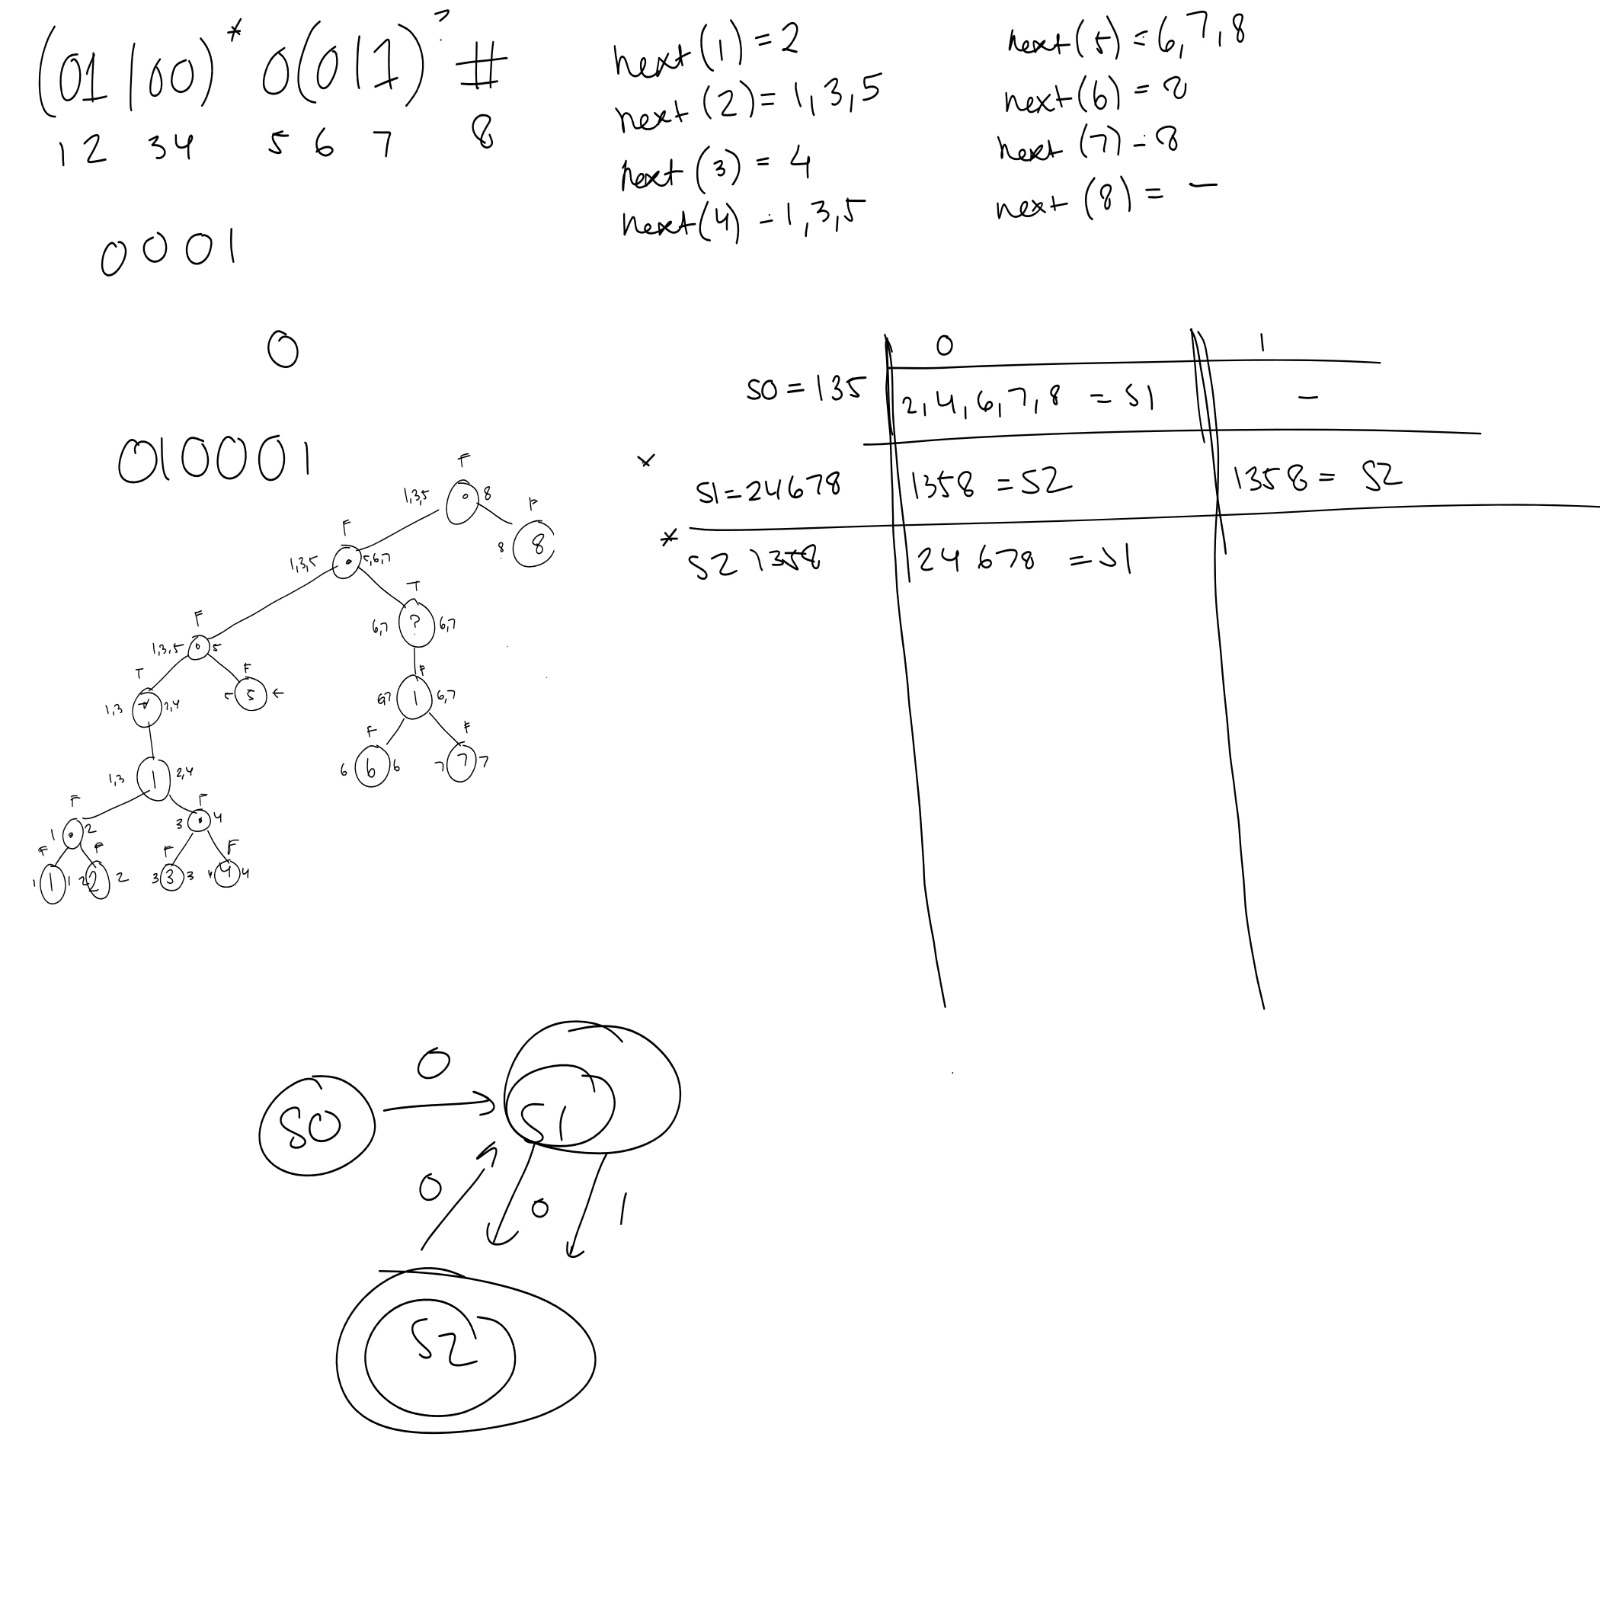 (01|00)* 0(0|1)? #
1 2 3 4 5 6 7 8
next(1) = 2
next(2) = 1,3,5
next(3) = 4
next(4) - 1,3,5
next(5) = 6,7,8
next(6) = 8
next(7) - 8
next(8) = -
0001
0
010001
0 1
S0 = 135 2,4,6,7,8 = S1 -
* S1=24678 1358 = S2 1358 = S2
* S2 1358 24678 = S1
F
1,3,5 8 F
F 8 8
1,3,5 5,6,7 T
F 6,7 ? 6,7
1,3,5 5
T F F
1,3 * 2,4 5 67 1 6,7
F F
6 6 6 7 7 7
1,3 1 2,4
F F
1 2 3 4
F F F F
1 1 1 2 2 2 3 3 3 4 4 4
S0 0 S1
0 0 1
S2